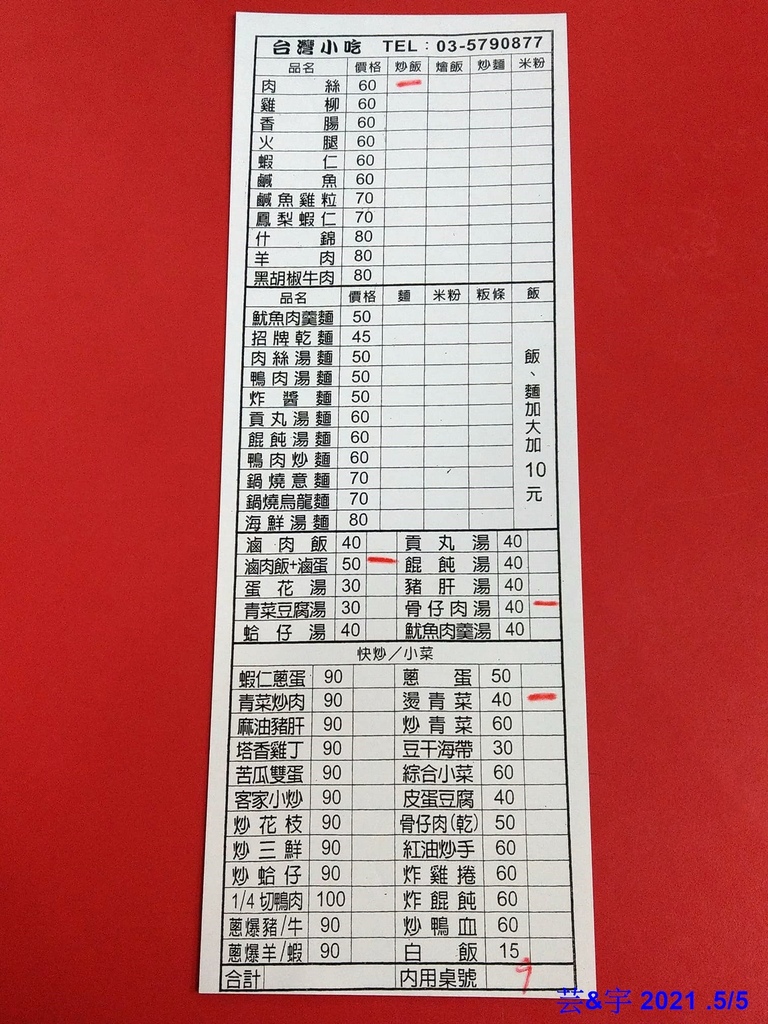 台灣小吃 TEL：03-5790877
品名 價格 炒飯 燴飯 炒麵 米粉
肉絲 60
雞柳 60
香腸 60
火腿 60
蝦仁 60
鹹魚 60
鹹魚雞粒 70
鳳梨蝦仁 70
什錦 80
羊肉 80
黑胡椒牛肉 80
品名 價格 麵 米粉 粄條 飯
魷魚肉羹麵 50
招牌乾麵 45
肉絲湯麵 50
鴨肉湯麵 50
炸醬麵 50
貢丸湯麵 60
餛飩湯麵 60
鴨肉炒麵 60
鍋燒意麵 70
鍋燒烏龍麵 70
海鮮湯麵 80
飯、麵加大加10元
滷肉飯 40 貢丸湯 40
滷肉飯+滷蛋 50 餛飩湯 40
蛋花湯 30 豬肝湯 40
青菜豆腐湯 30 骨仔肉湯 40
蛤仔湯 40 魷魚肉羹湯 40
快炒／小菜
蝦仁蔥蛋 90 蔥蛋 50
青菜炒肉 90 燙青菜 40
麻油豬肝 90 炒青菜 60
塔香雞丁 90 豆干海帶 30
苦瓜雙蛋 90 綜合小菜 60
客家小炒 90 皮蛋豆腐 40
炒花枝 90 骨仔肉(乾) 50
炒三鮮 90 紅油炒手 60
炒蛤仔 90 炸雞捲 60
1/4切鴨肉 100 炸餛飩 60
蔥爆豬/牛 90 炒鴨血 60
蔥爆羊/蝦 90 白飯 15
合計 內用桌號 9
芸&宇 2021 .5/5